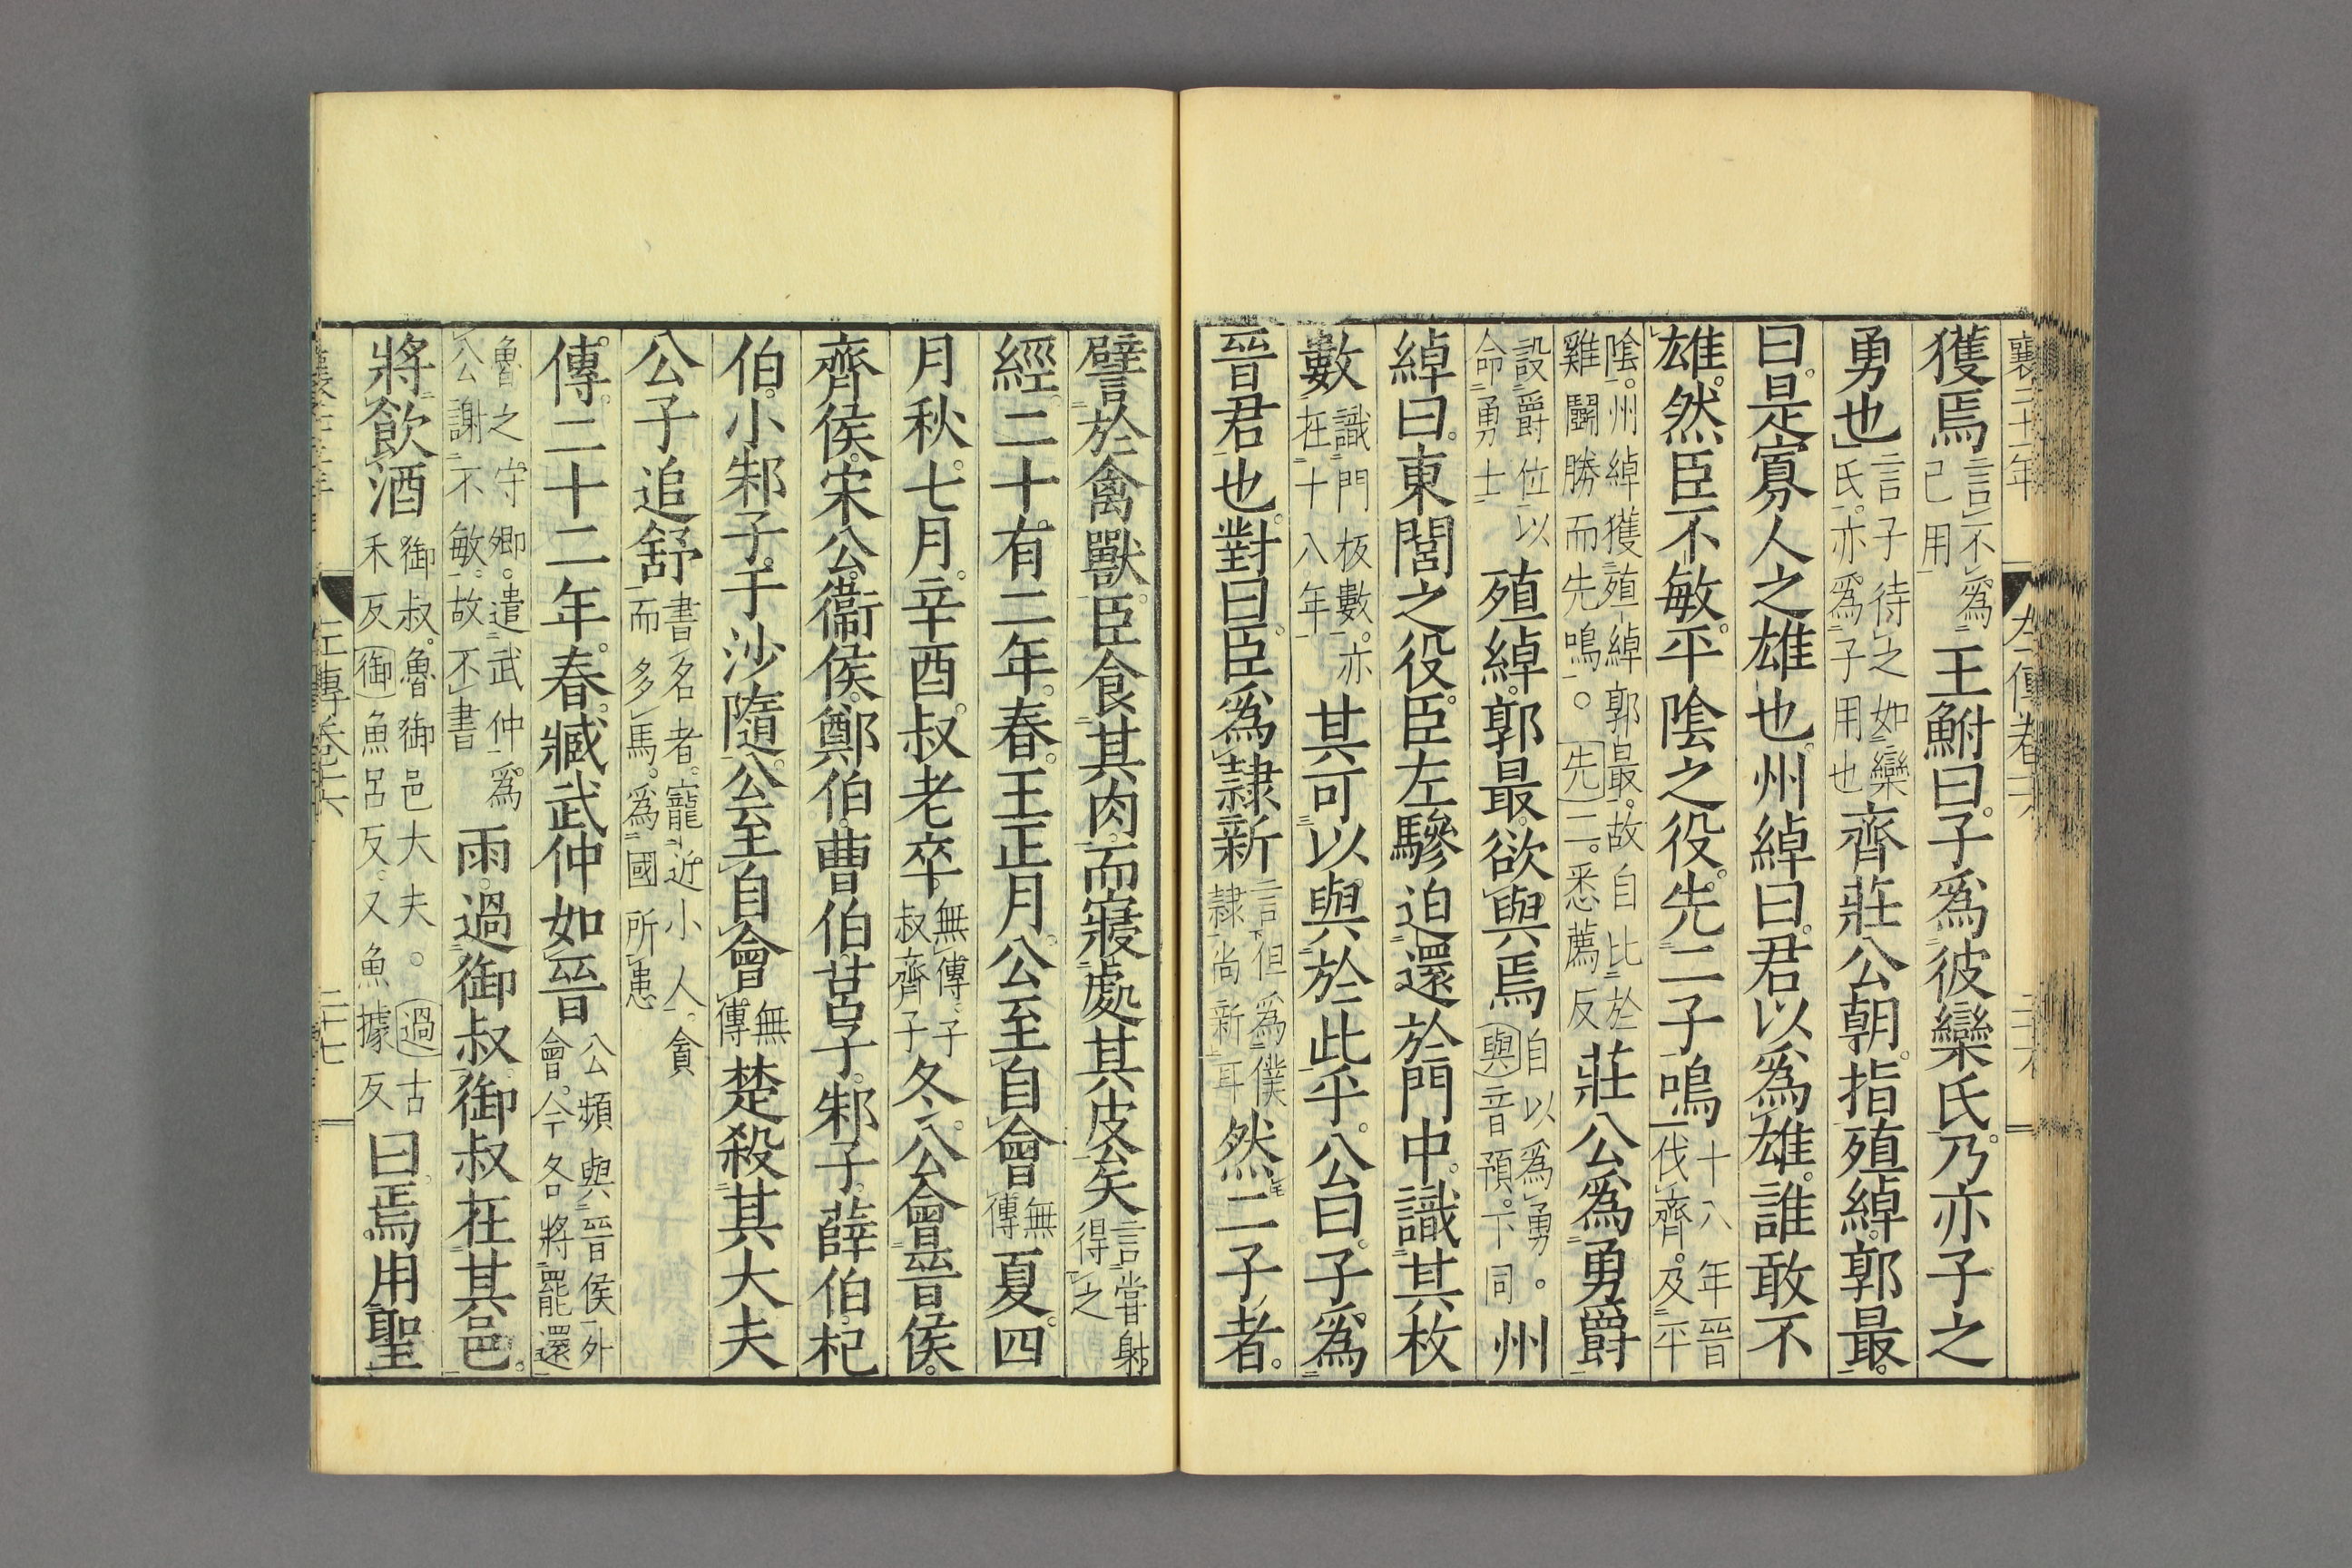 襄二十一年 左傳卷十六 二十六
獲焉言不爲己用王鮒曰子爲彼欒氏乃亦子之
勇也言子待之如欒氏亦爲子用也齊莊公朝指殖綽郭最
曰是寡人之雄也州綽曰君以爲雄誰敢不
雄然臣不敏平陰之役先二子鳴十八年晉伐齊及平
陰州綽獲殖綽郭最故自比於雞鬭勝而先鳴。先二悉薦反莊公爲勇爵
設爵位以命勇士殖綽郭最欲與焉自以爲勇。與音預下同州
綽曰東閭之役臣左驂迫還於門中識其枚
數識門板數亦在十八年其可以與於此乎公曰子爲
晉君也對曰臣爲隷新言但爲僕隷尚新耳然二子者
譬於禽獸臣食其肉而寢處其皮矣言嘗射得之
經二十有二年春王正月公至自會無傳夏四
月秋七月辛酉叔老卒無傳子叔齊子冬公會晉侯
齊侯宋公衞侯鄭伯曹伯莒子邾子薛伯杞
伯小邾子于沙隨公至自會無傳楚殺其大夫
公子追舒書名者寵近小人貪而多馬爲國所患
傳二十二年春臧武仲如晉公頻與晉侯外會今各將罷還
魯之守卿遣武仲爲公謝不敏故不書雨過御叔御叔在其邑
將飲酒御叔魯御邑大夫。過古禾反御魚呂反又魚據反曰焉用聖
左傳卷十六 二十七